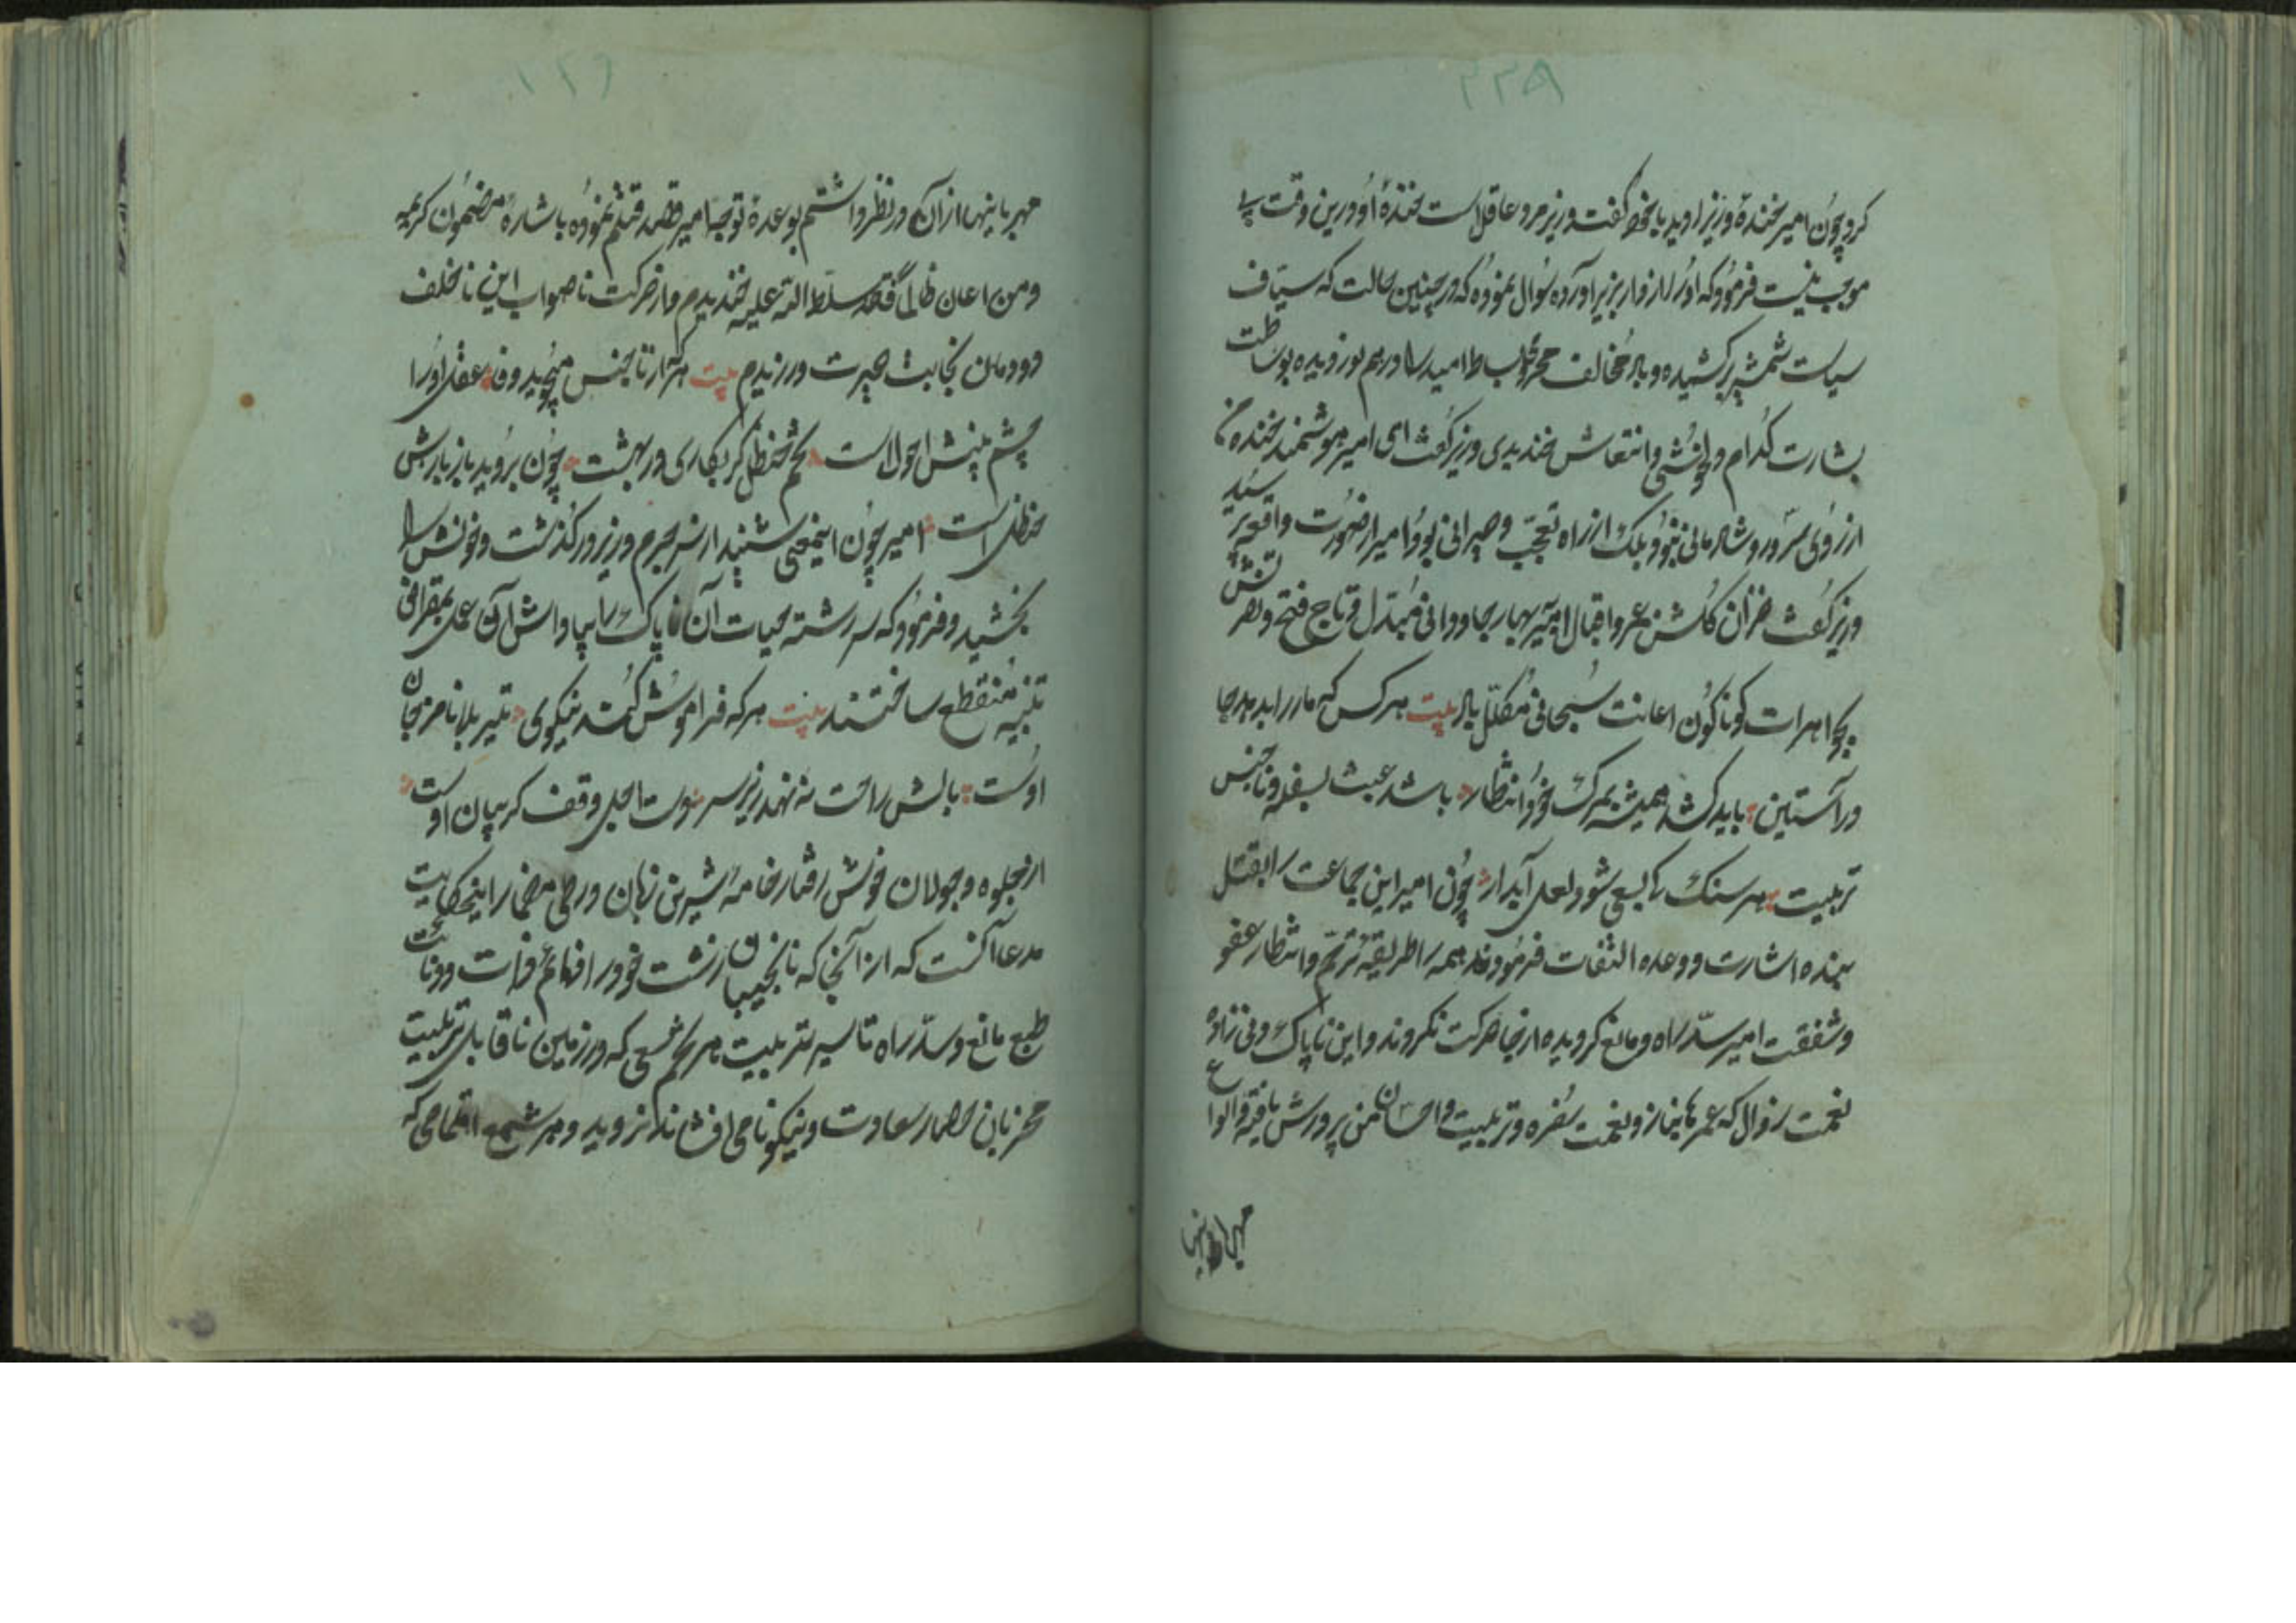 کرد چون امیر خندهٔ وزیر را دید با خود گفت وزیر مرد عاقل است خندهٔ او درین وقت بی
موجب نیست فرمود که او را از دار بزیر آورده سوال نموده که در چنین حالت که سیاف
سیاست شمشیر برکشیده و باد مخالف بساط امید را درهم نوردیده بوساطت
بشارت کدام دلخوشی و انتعاش خندیدی وزیر گفت ای امیر هوشمند خنده من
از روی سرور و شادمانی نبود بلکه از راه تعجب و حیرانی بود امیر از صورت واقعه پرسید
وزیر گفت خزان گلشن عمر و اقبال امیر ببهار جاودانی مبدل و تاج فتح و نصرتش
بجواهرات گوناگون اعانت سبحانی مکلل باد بیت هرکس که مار را بدهد جا
در آستین باید کشد همیشه بمرگ خود انتظار باشد عبث بسفله و ناجنس
تربیت هر سنگ کی بسعی شود لعل آبدار چون امیر این جماعت را بقتل
بنده اشارت و وعده التفات فرمودند همه را طریقهٔ ترحم و انتظار عفو
و شفقت امیر سد راه و مانع گردیده از جا حرکت نکردند و این ناپاک دنی زاده
نعمت زوال که عمرها بناز و نعمت سفره و تربیت و احسان من پرورش یافته و انواع
مهربانیها
مهربانیها از آن در نظر داشتم بوعدهٔ توجه امیر قصد قتلم نموده باشارهٔ مضمون کریمه
و من اعان ظالماً فقد سلط الله علیه خندیدم و از حرکت ناصواب این ناخلف
دودمان نجابت حیرت ورزیدم بیت هر که از ناجنس میجوید وفا عقل او را
چشم بینش احول است تخم حنظل گر بکاری در بهشت چون بروید باز بارش
حنظل است امیر چون اینمعنی شنید از سر جرم وزیر درگذشت و خونش را
بخشید و فرمود که سر رشته حیات آن ناپاک را بپاداش آن عمل بمقراض
تنبیه منقطع ساختند بیت هر که فراموش کند نیکوی تیر بلا نامزد جان
اوست بالش راحت نه نهد زیر سر دست اجل وقف گریبان اوست
از جلوه و جولان خوش رفتار خامهٔ شیرین زبان در طی مضمار اینحکایت
مدعا آنست که از آنجا که نانجیبان زشت خو را دمائم ذات و دنائت
طبع مانع و سد راه تاثیر تربیت هر تخم سعی که در زمین ناقابل تربیت
محرزبان حصار سعادت و نیکونامی افشاند نروید و هر شمع اهتمامی که